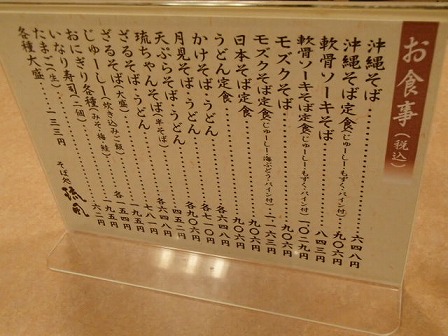 お食事（税込）
沖縄そば 六四八円
沖縄そば定食（じゅーしー・もずく・パイン付） 九〇六円
軟骨ソーキそば 八四三円
軟骨ソーキそば定食（じゅーしー・もずく・パイン付） 一〇二九円
モズクそば 九〇六円
モズクそば定食（じゅーしー・海ぶどう・パイン付） 一一六三円
日本そば定食 九〇六円
うどん定食 九〇六円
かけそば・うどん 各六四八円
月見そば・うどん 各七一〇円
天ぷらそば・うどん 各九〇六円
琉ちゃんそば（半そば） 四五二円
ざるそば・うどん 各六四八円
ざるそば（大盛） 七八一円
じゅーしー（炊き込みご飯）
おにぎり各種（みそ・梅・鮭） 各一五四円
いなり寿司（二個） 一九五円
たまご（生） 六二円
各種大盛 一三三円
そば処 琉風